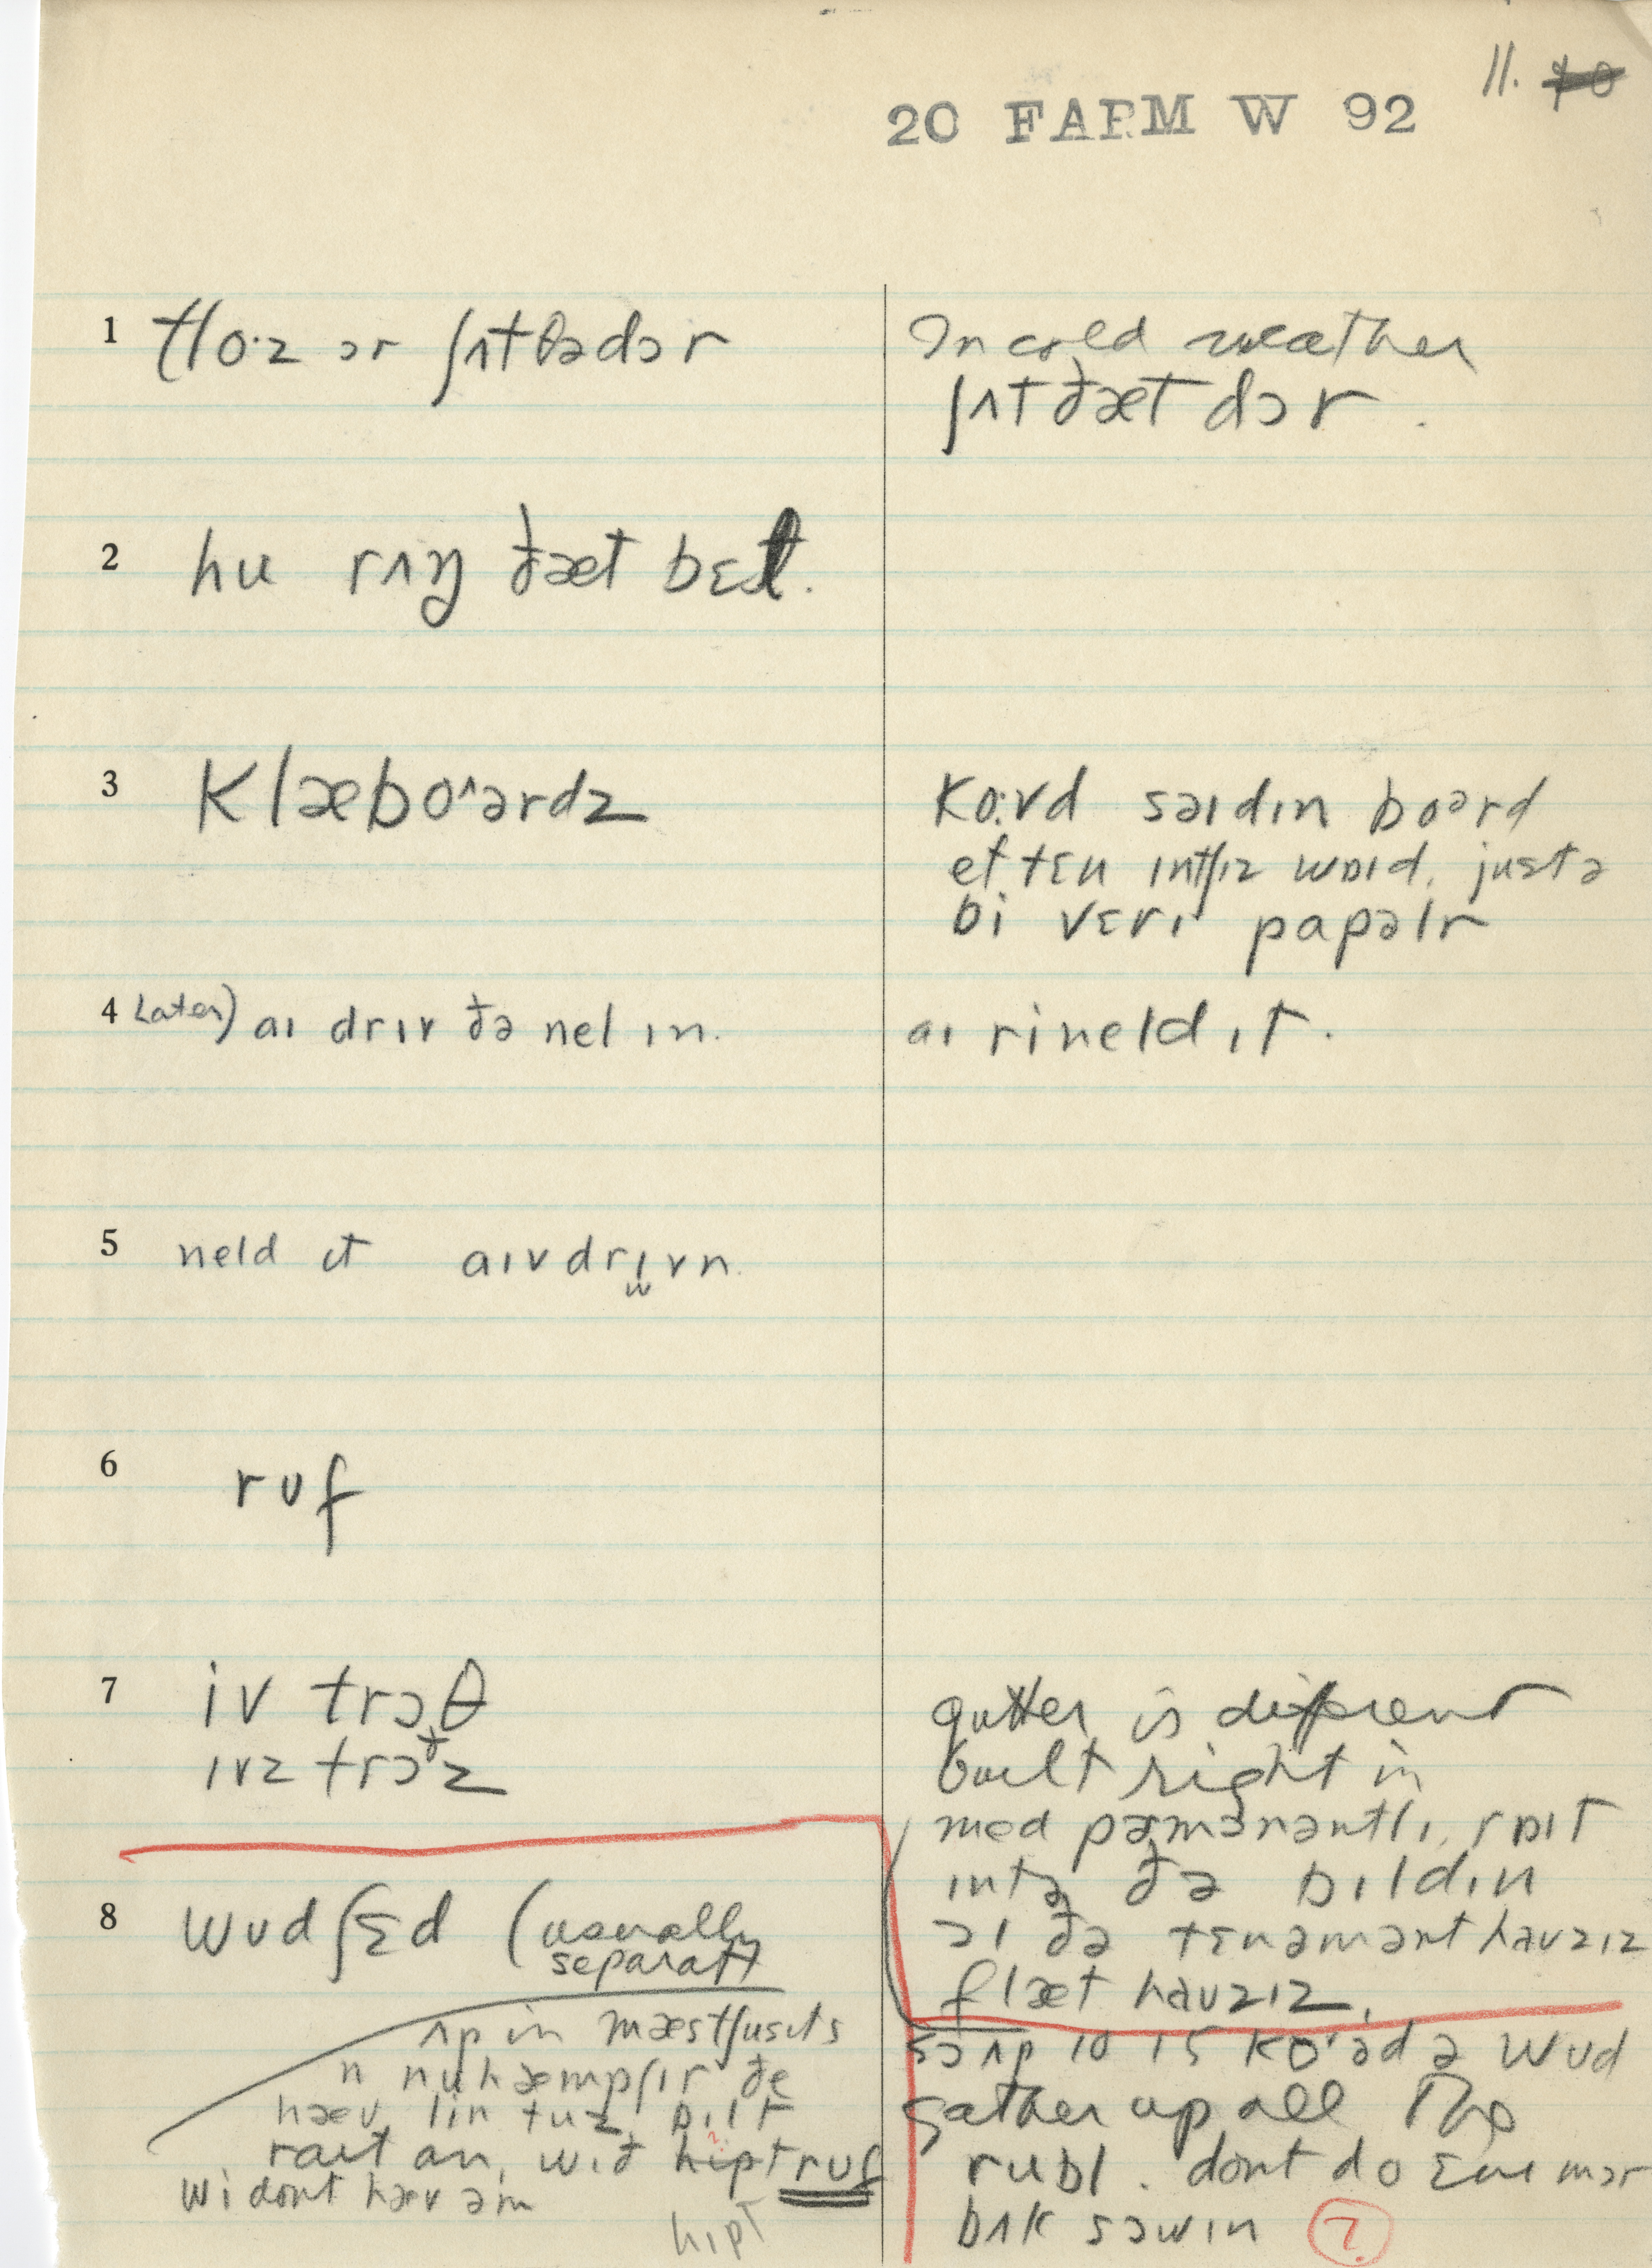 11. 40
20 FARM W 92
1 tʃo·z ər ʃʌtðədɔr
In cold weather
ʃʌt ðæt dɔr.
2 hu rʌŋ ðæt bɛl.
3 Klæbo^ərdz
Ko:vd səɪdɪn boərd
et tɛn intʃɪz wɒɪd. justə
bi vɛrɪ papəlr
4 Later) aɪ drɪv ðə nel ɪn.
aɪ rineld ɪt.
5 neld ɪt aɪv drɪvn.
6 rʊf
7 iv trɔθ
ivz trɔðz
gutter is different
built right in
med pəmənəntlɪ, rɒɪt
intə ðə bɪldɪn
ɔl ðə tɛnəmənt haʊzɪz
flæt haʊzɪz.
8 wʊdʃɛd (usually
separatt
ʌp in mæstʃusɪts
n nuhæmpʃɪr ðe
hæv lin tuz bɪlt
raɪt an, wɪð hɪpt rʊf
wi dont hæv əm
hɪpt
sɔ ʌp 10 15 ko^əd ə wʊd
gather up all the
rubl. dont do ɛnɪ mɔr
bʌk sɔwɪn ?